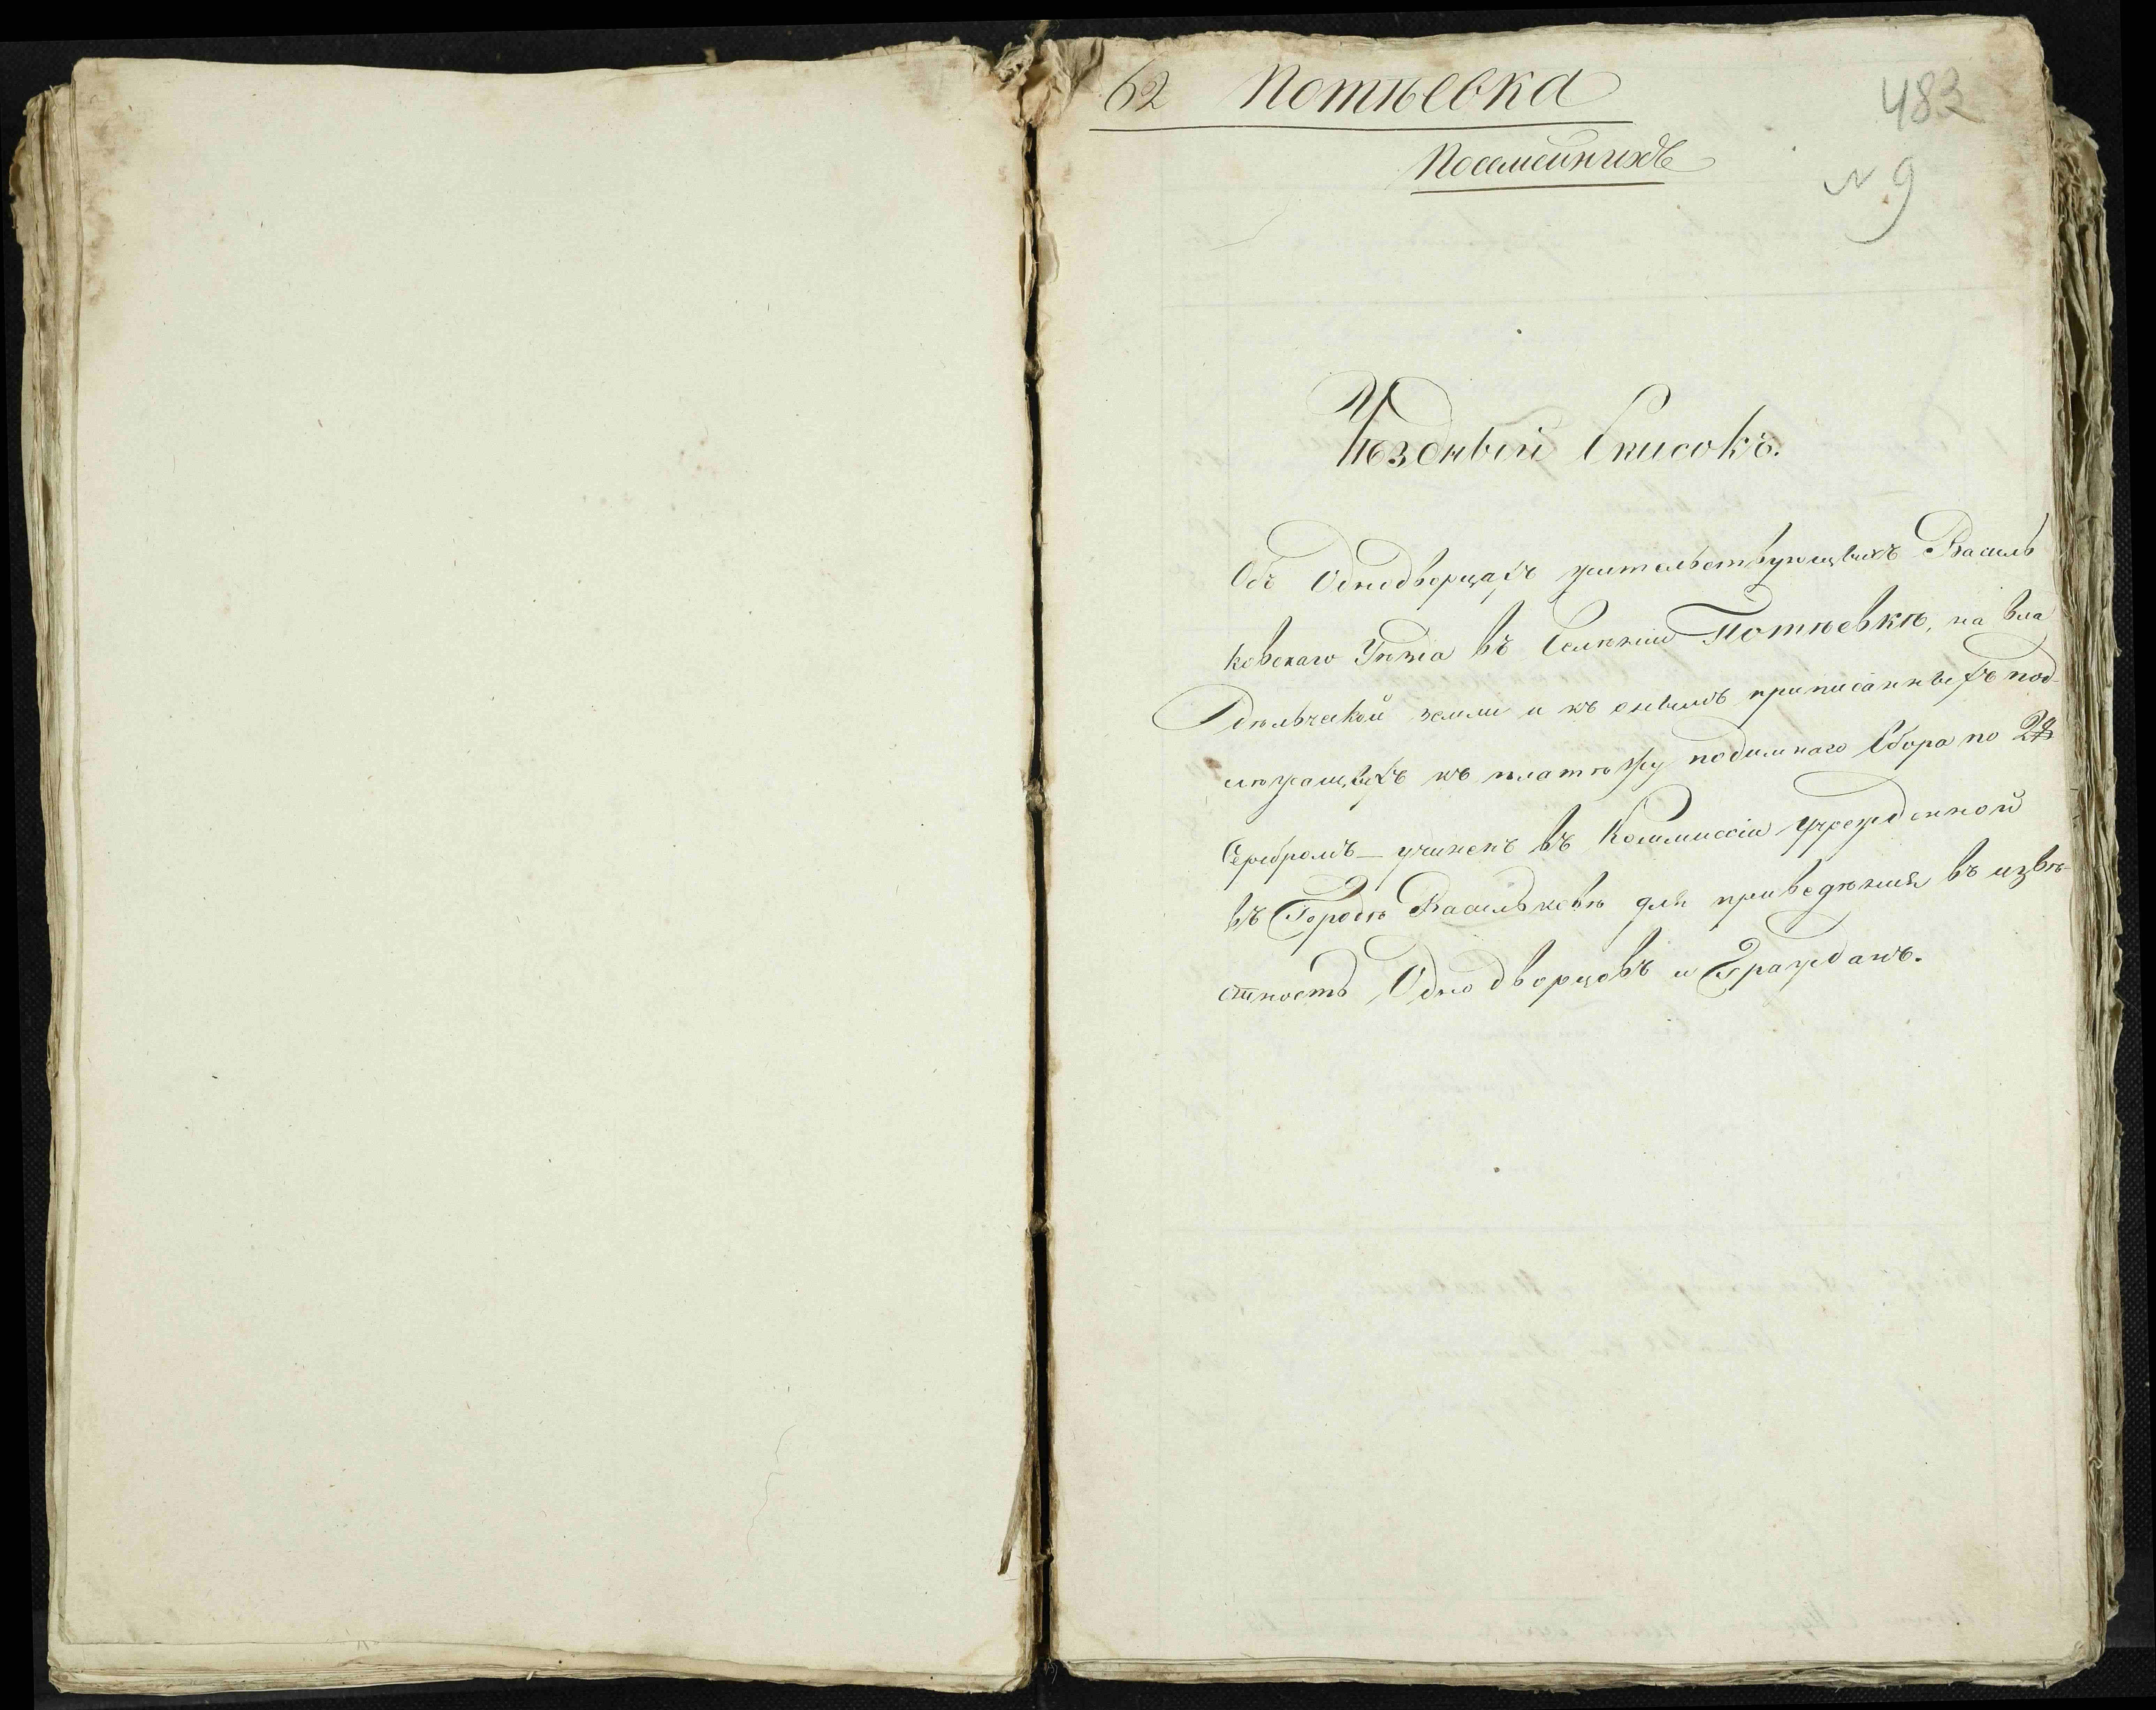 62 Потѣевка
483
Посемейникъ
№ 9
Уѣздный Списокъ.
Объ Однодворцахъ жительствующихъ Василь
ковскаго Уѣзда въ Селѣнии Потѣевкѣ, на вла
дѣльческой земли и къ онымъ приписанныхъ под-
лѣжащихъ къ платѣжу подымнаго Сбора по 2 р
Серебромъ — учиненъ въ Коммиссіи учрежденной
въ Городѣ Васильковѣ для приведѣния въ извѣ-
стность Однодворцовъ и Гражданъ.